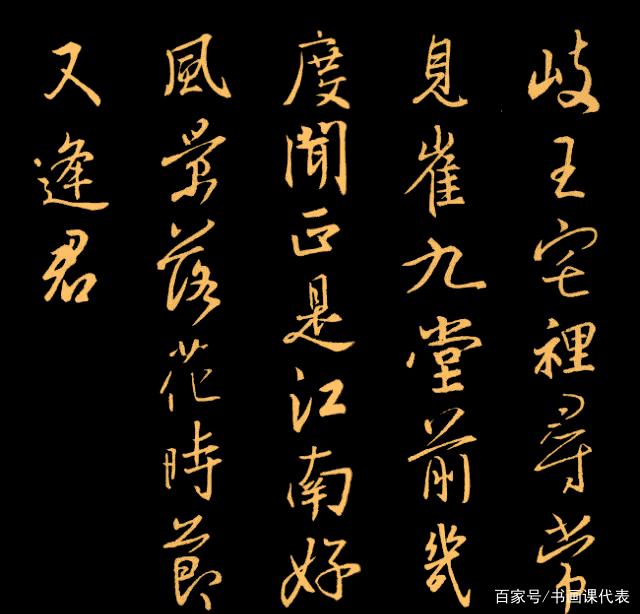 岐王宅裡尋常
見崔九堂前幾
度聞正是江南好
風景落花時節
又逢君
百家号/书画课代表